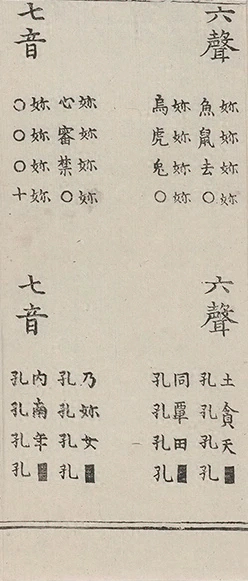 六聲
妳妳妳妳
魚鼠去○
妳妳妳妳
烏虎兎○
七音
妳妳妳妳
心審禁○
妳妳妳妳
○○○十
六聲
土貪天■
孔孔孔孔
同覃田■
孔孔孔孔
七音
乃妳女■
孔孔孔孔
內南年■
孔孔孔孔